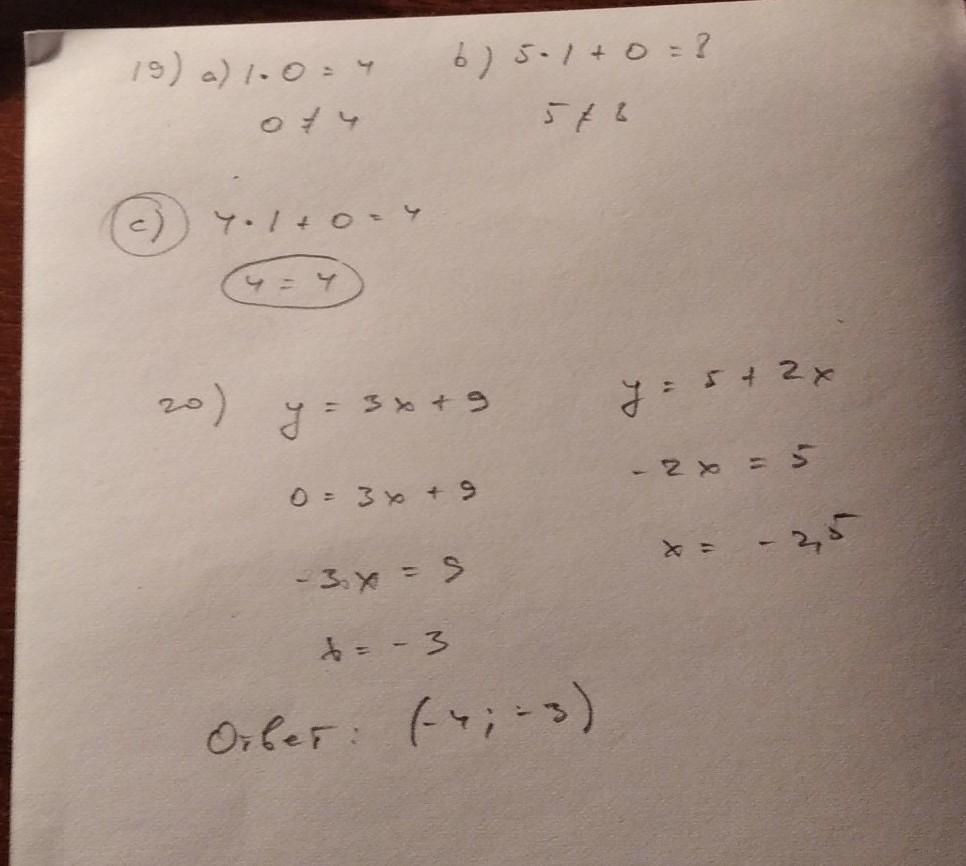 19) a) 1 · 0 = 4 b) 5 · 1 + 0 = 8
0 ≠ 4 5 ≠ 8
c) 4 · 1 + 0 = 4
4 = 4
20) y = 3x + 9 y = 5 + 2x
0 = 3x + 9 -2x = 5
-3x = 9 x = -2,5
x = -3
Ответ: (-4; -3)